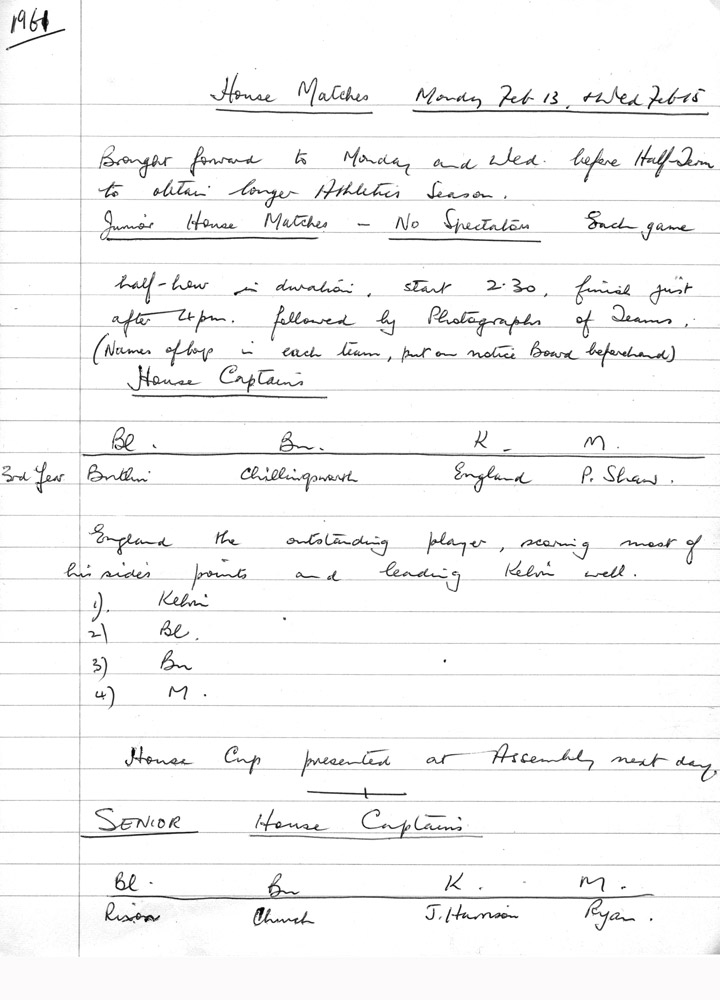 1961
House Matches Monday Feb 13, + Wed Feb 15
Brought forward to Monday and Wed. before Half-Term
to obtain longer Athletics Season.
Junior House Matches - No Spectators Each game
half-hour in duration, start 2.30, finish just
after 4pm. followed by Photographs of Teams.
(Names of boys in each team, put on notice Board beforehand)
House Captains
Bl. Bn. K. M.
3rd Year Chillingsworth England P. Shaw.
England the outstanding player, scoring most of
his side's points and leading Kelvin well.
1). Kelvin
2) Bl.
3) Bn
4) M.
House Cup presented at Assembly next day.
SENIOR House Captains
Bl. Bn K. M.
Rixon Church J. Harrison Ryan.